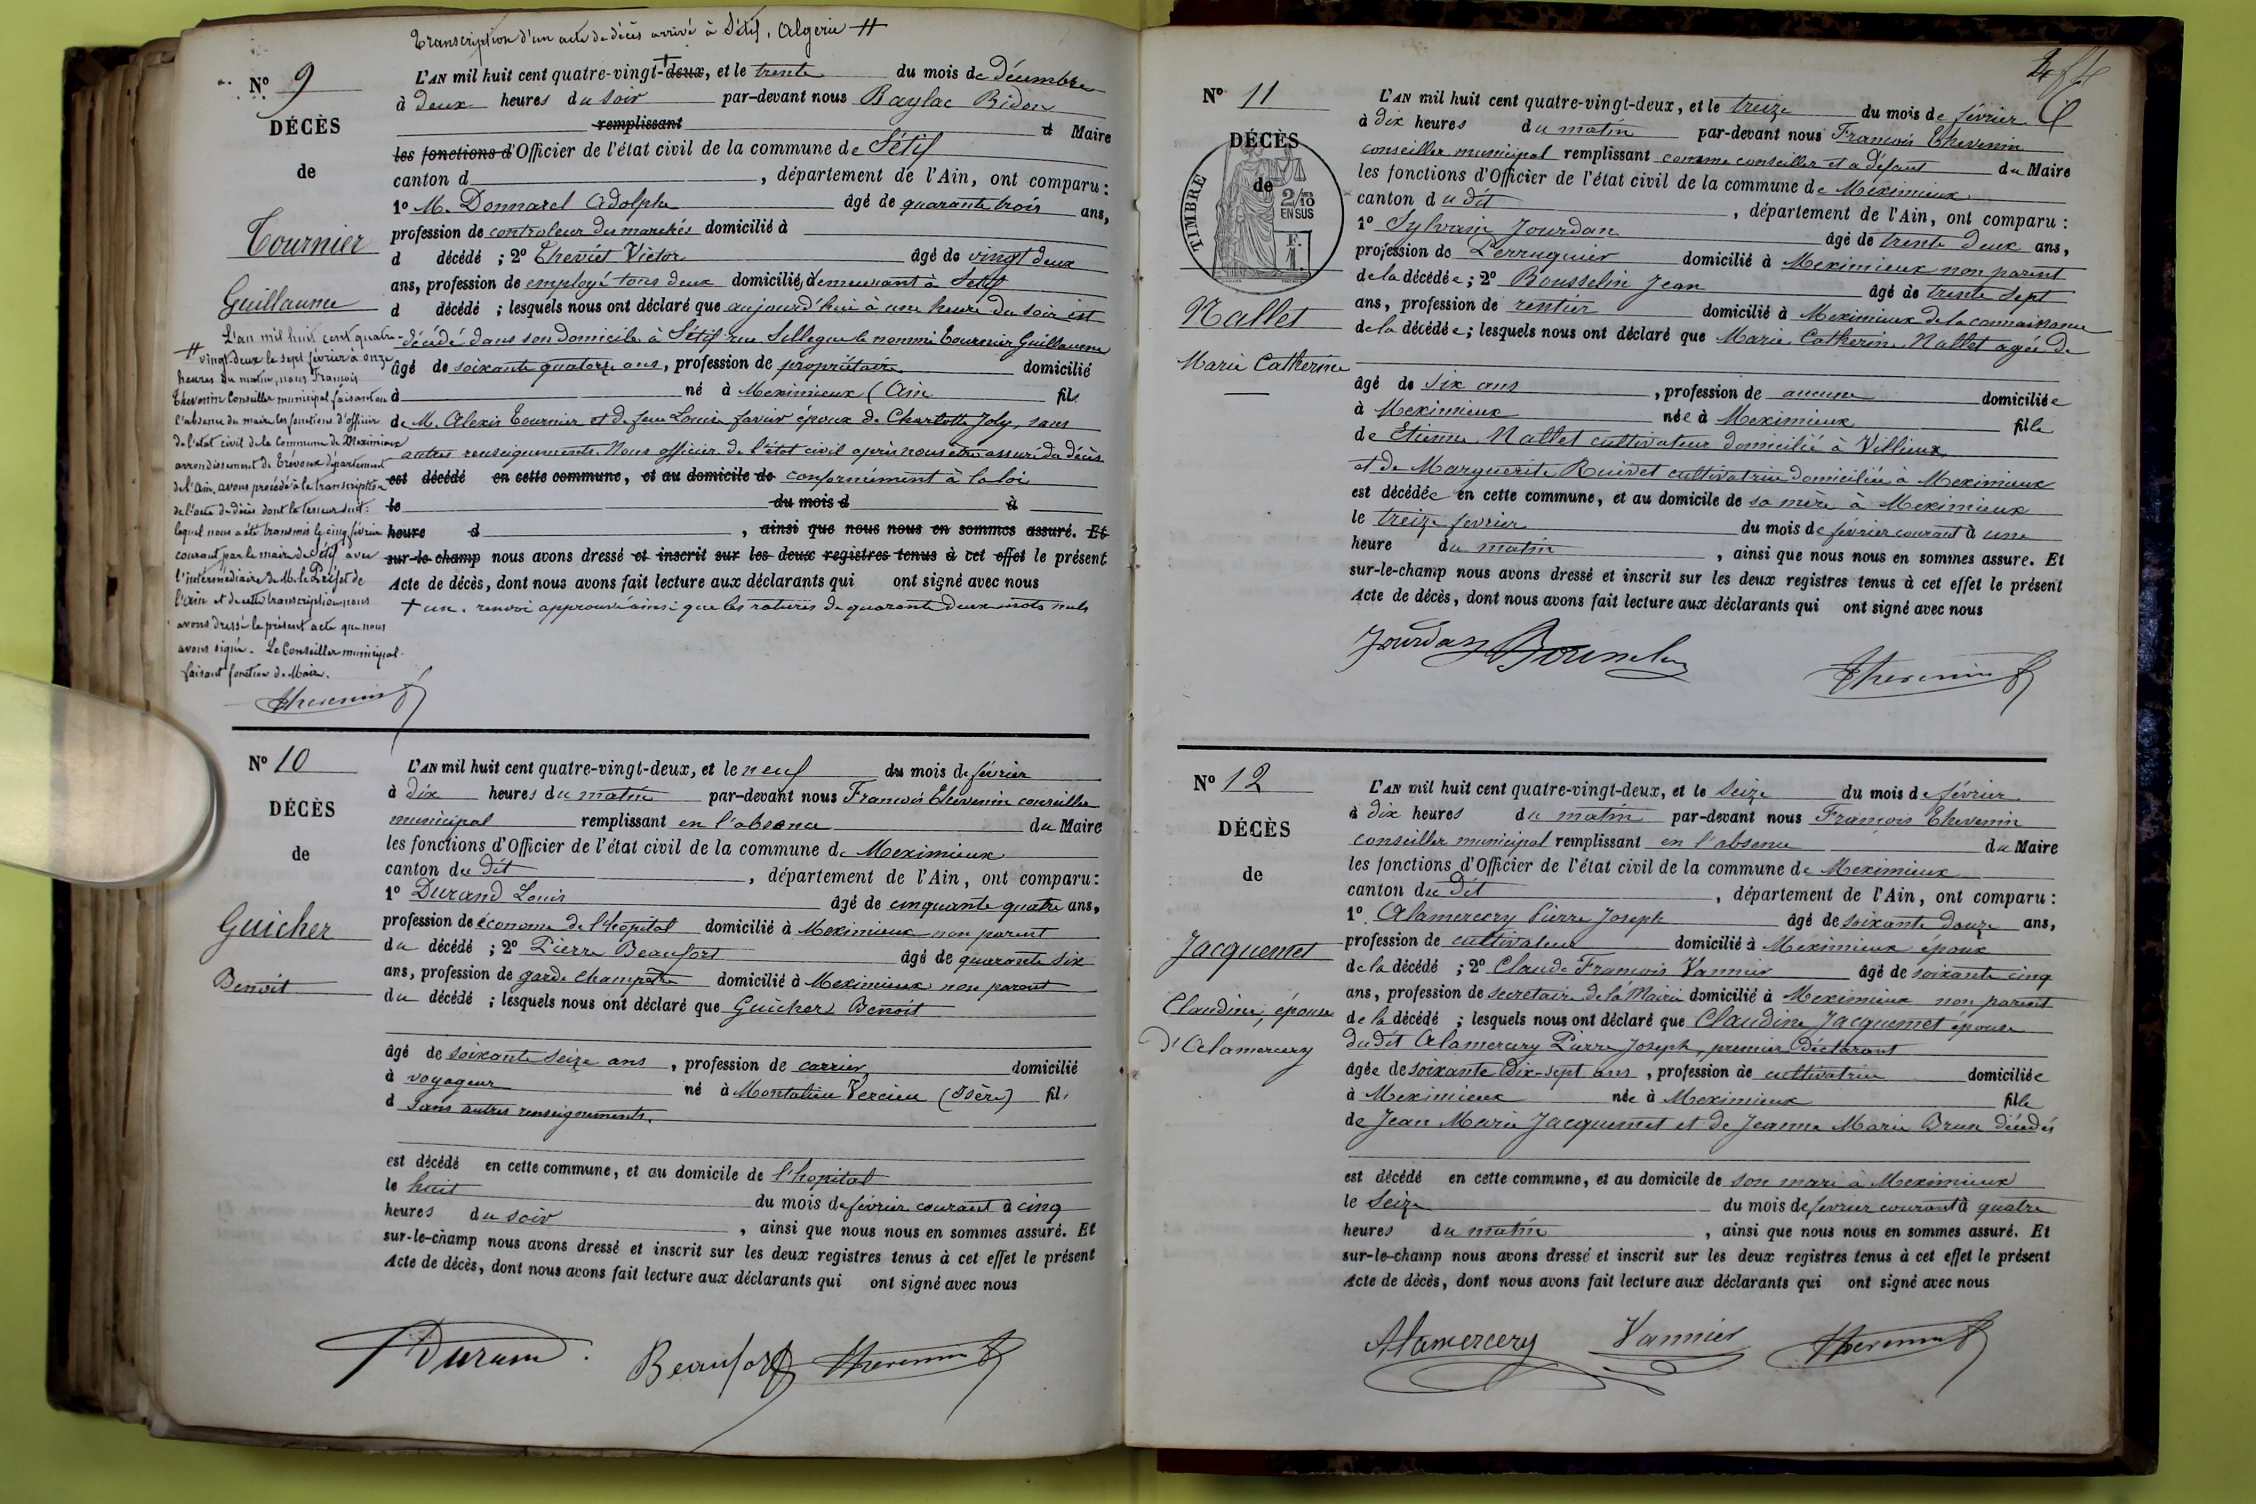 Transcription d'un acte de décès arrivé à Sétif, Algérie #
Nº 9
DÉCÈS
de
Tournier
Guillaume
L'AN mil huit cent quatre-vingt-+deux, et le trente du mois de décembre
à deux heures du soir par-devant nous Baylac Bidou
remplissant d Maire
les fonctions d'Officier de l'état civil de la commune de Sétif
canton d , département de l'Ain, ont comparu :
1º M. Donnarel Adolphe âgé de quarante trois ans,
profession de controleur des marchés domicilié à
d décédé ; 2º Theriet Victor âgé de vingt deux
ans, profession de employé tous deux domicilié demeurant à Sétif
d décédé ; lesquels nous ont déclaré que aujourd'hui à une heure du soir est
décédé dans son domicile à Sétif rue Sillègue le nommé Tournier Guillaume
âgé de soixante quatorze ans, profession de propriétaire domicilié
à né à Meximieux (Ain fils
de M. Alexis Tournier et de feue Louise favier époux de Charlotte Joly, sans
autres renseignements. Nous officier de l'état civil après nous être assuré du décès
est décédé en cette commune, et au domicile de conformément à la loi
le du mois d à
heure d , ainsi que nous nous en sommes assuré. Et
sur-le-champ nous avons dressé et inscrit sur les deux registres tenus à cet effet le présent
Acte de décès, dont nous avons fait lecture aux déclarants qui ont signé avec nous
+ un. renvoi approuvé ainsi que les ratures de quarante deux mots nuls
# L'an mil huit cent quatre-
vingt-deux le sept février à onze
heures du matin, nous François
Thevenin Conseiller municipal faisant en
l'absence du maire les fonctions d'officier
de l'état civil de la Commune de Meximieux
arrondissement de Trévoux département
de l'Ain, avons procédé à la transcription
de l'acte de décès dont la teneur suit:
lequel nous a été transmis le cinq février
courant par le maire de Sétif avec
l'intermédiaire de M. le Préfet de
l'Ain et de cette transcription nous
avons dressé le présent acte que nous
avons signé. Le Conseiller municipal
faisant fonction de Maire.
Thevenin
Nº 10
DÉCÈS
de
Guicher
Benoit
L'AN mil huit cent quatre-vingt-deux, et le neuf du mois de février
à dix heures du matin par-devant nous François Thevenin conseiller
municipal remplissant en l'absence du Maire
les fonctions d'Officier de l'état civil de la commune de Meximieux
canton du dit , département de l'Ain, ont comparu :
1º Durand Louis âgé de cinquante quatre ans,
profession de économe de l'hopital domicilié à Meximieux non parent
du décédé ; 2º Pierre Beaufort âgé de quarante six
ans, profession de garde champêtre domicilié à Meximieux non parent
du décédé ; lesquels nous ont déclaré que Guicher Benoit
âgé de soixante seize ans , profession de carrier domicilié
à voyageur né à Montalieu Vercieu (Isère) fils
d sans autres renseignements.
est décédé en cette commune, et au domicile de l'hopital
le huit du mois de février courant à cinq
heures du soir , ainsi que nous nous en sommes assuré. Et
sur-le-champ nous avons dressé et inscrit sur les deux registres tenus à cet effet le présent
Acte de décès, dont nous avons fait lecture aux déclarants qui ont signé avec nous
Durand Beaufort Thevenin
Nº 11
DÉCÈS
de
TIMBRE
2/10 EN SUS
F. 1.
Nallet
Marie Catherine
L'AN mil huit cent quatre-vingt-deux, et le treize du mois de février
à dix heures du matin par-devant nous François Thevenin
conseiller municipal remplissant comme conseiller et a défaut du Maire
les fonctions d'Officier de l'état civil de la commune de Meximieux
canton du dit , département de l'Ain, ont comparu :
1º Sylvain Jourdan âgé de trente deux ans,
profession de Perruquier domicilié à Meximieux non parent
de la décédée ; 2º Bousselin Jean âgé de trente sept
ans, profession de rentier domicilié à Meximieux de la connaissance
de la décédée ; lesquels nous ont déclaré que Marie Catherine Nallet agée de
âgé de six ans , profession de aucune domiciliée
à Meximieux née à Meximieux fille
de Etienne Nallet cultivateur domicilié à Villieux
et de Marguerite Ruivet cultivatrice domiciliée à Meximieux
est décédée en cette commune, et au domicile de sa mère à Meximieux
le treize fevrier du mois de février courant à une
heure du matin , ainsi que nous nous en sommes assure. Et
sur-le-champ nous avons dressé et inscrit sur les deux registres tenus à cet effet le présent
Acte de décès, dont nous avons fait lecture aux déclarants qui ont signé avec nous
Jourdan Bousselin Thevenin
Nº 12
DÉCÈS
de
Jacquemet
Claudine, épouse
d'Alamercery
L'AN mil huit cent quatre-vingt-deux, et le seize du mois de février
à dix heures du matin par-devant nous François Thevenin
conseiller municipal remplissant en l'absence du Maire
les fonctions d'Officier de l'état civil de la commune de Meximieux
canton du dit , département de l'Ain, ont comparu :
1º Alamercery Pierre Joseph âgé de soixante douze ans,
profession de cultivateur domicilié à Meximieux époux
de la décédé ; 2º Claude François Vannier âgé de soixante cinq
ans, profession de secretaire de la Mairie domicilié à Meximieux non parent
de la décédé ; lesquels nous ont déclaré que Claudine Jacquemet épouse
du dit Alamercery Pierre Joseph, premier Déclarant
âgée de soixante dix-sept ans , profession de cultivatrice domiciliée
à Meximieux née à Meximieux fille
de Jean Marie Jacquemet et de Jeanne Marie Brun décédés
est décédé en cette commune, et au domicile de son mari à Meximieux
le seize du mois de fevrier courant à quatre
heures du matin , ainsi que nous nous en sommes assuré. Et
sur-le-champ nous avons dressé et inscrit sur les deux registres tenus à cet effet le présent
Acte de décès, dont nous avons fait lecture aux déclarants qui ont signé avec nous
Alamercery Vannier Thevenin